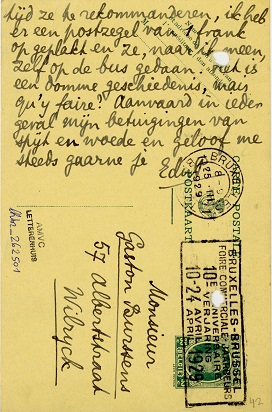 tijd ze te rekommanderen, ik heb
er een postzegel van 1 frank
op geplakt en ze, naar ik meen,
zelf op de bus gedaan. Het is
een domme geschiedenis, maar
qu'y faire? Aanvaard in ieder
geval mijn betuigingen van
spijt en woede en geloof me
steeds gaarne je
CARTE POSTALE
POSTKAART
Monsieur
Gaston Burssens
57 Albertstraat
Wilryck
BRUXELLES-BRUSSEL
FOIRE COMMERCIALE JAARBEURS
10e ANNIVERSAIRE
VERJARING
10-24 AVRIL
APRIL 1929
AMVC
LETTERENHUIS